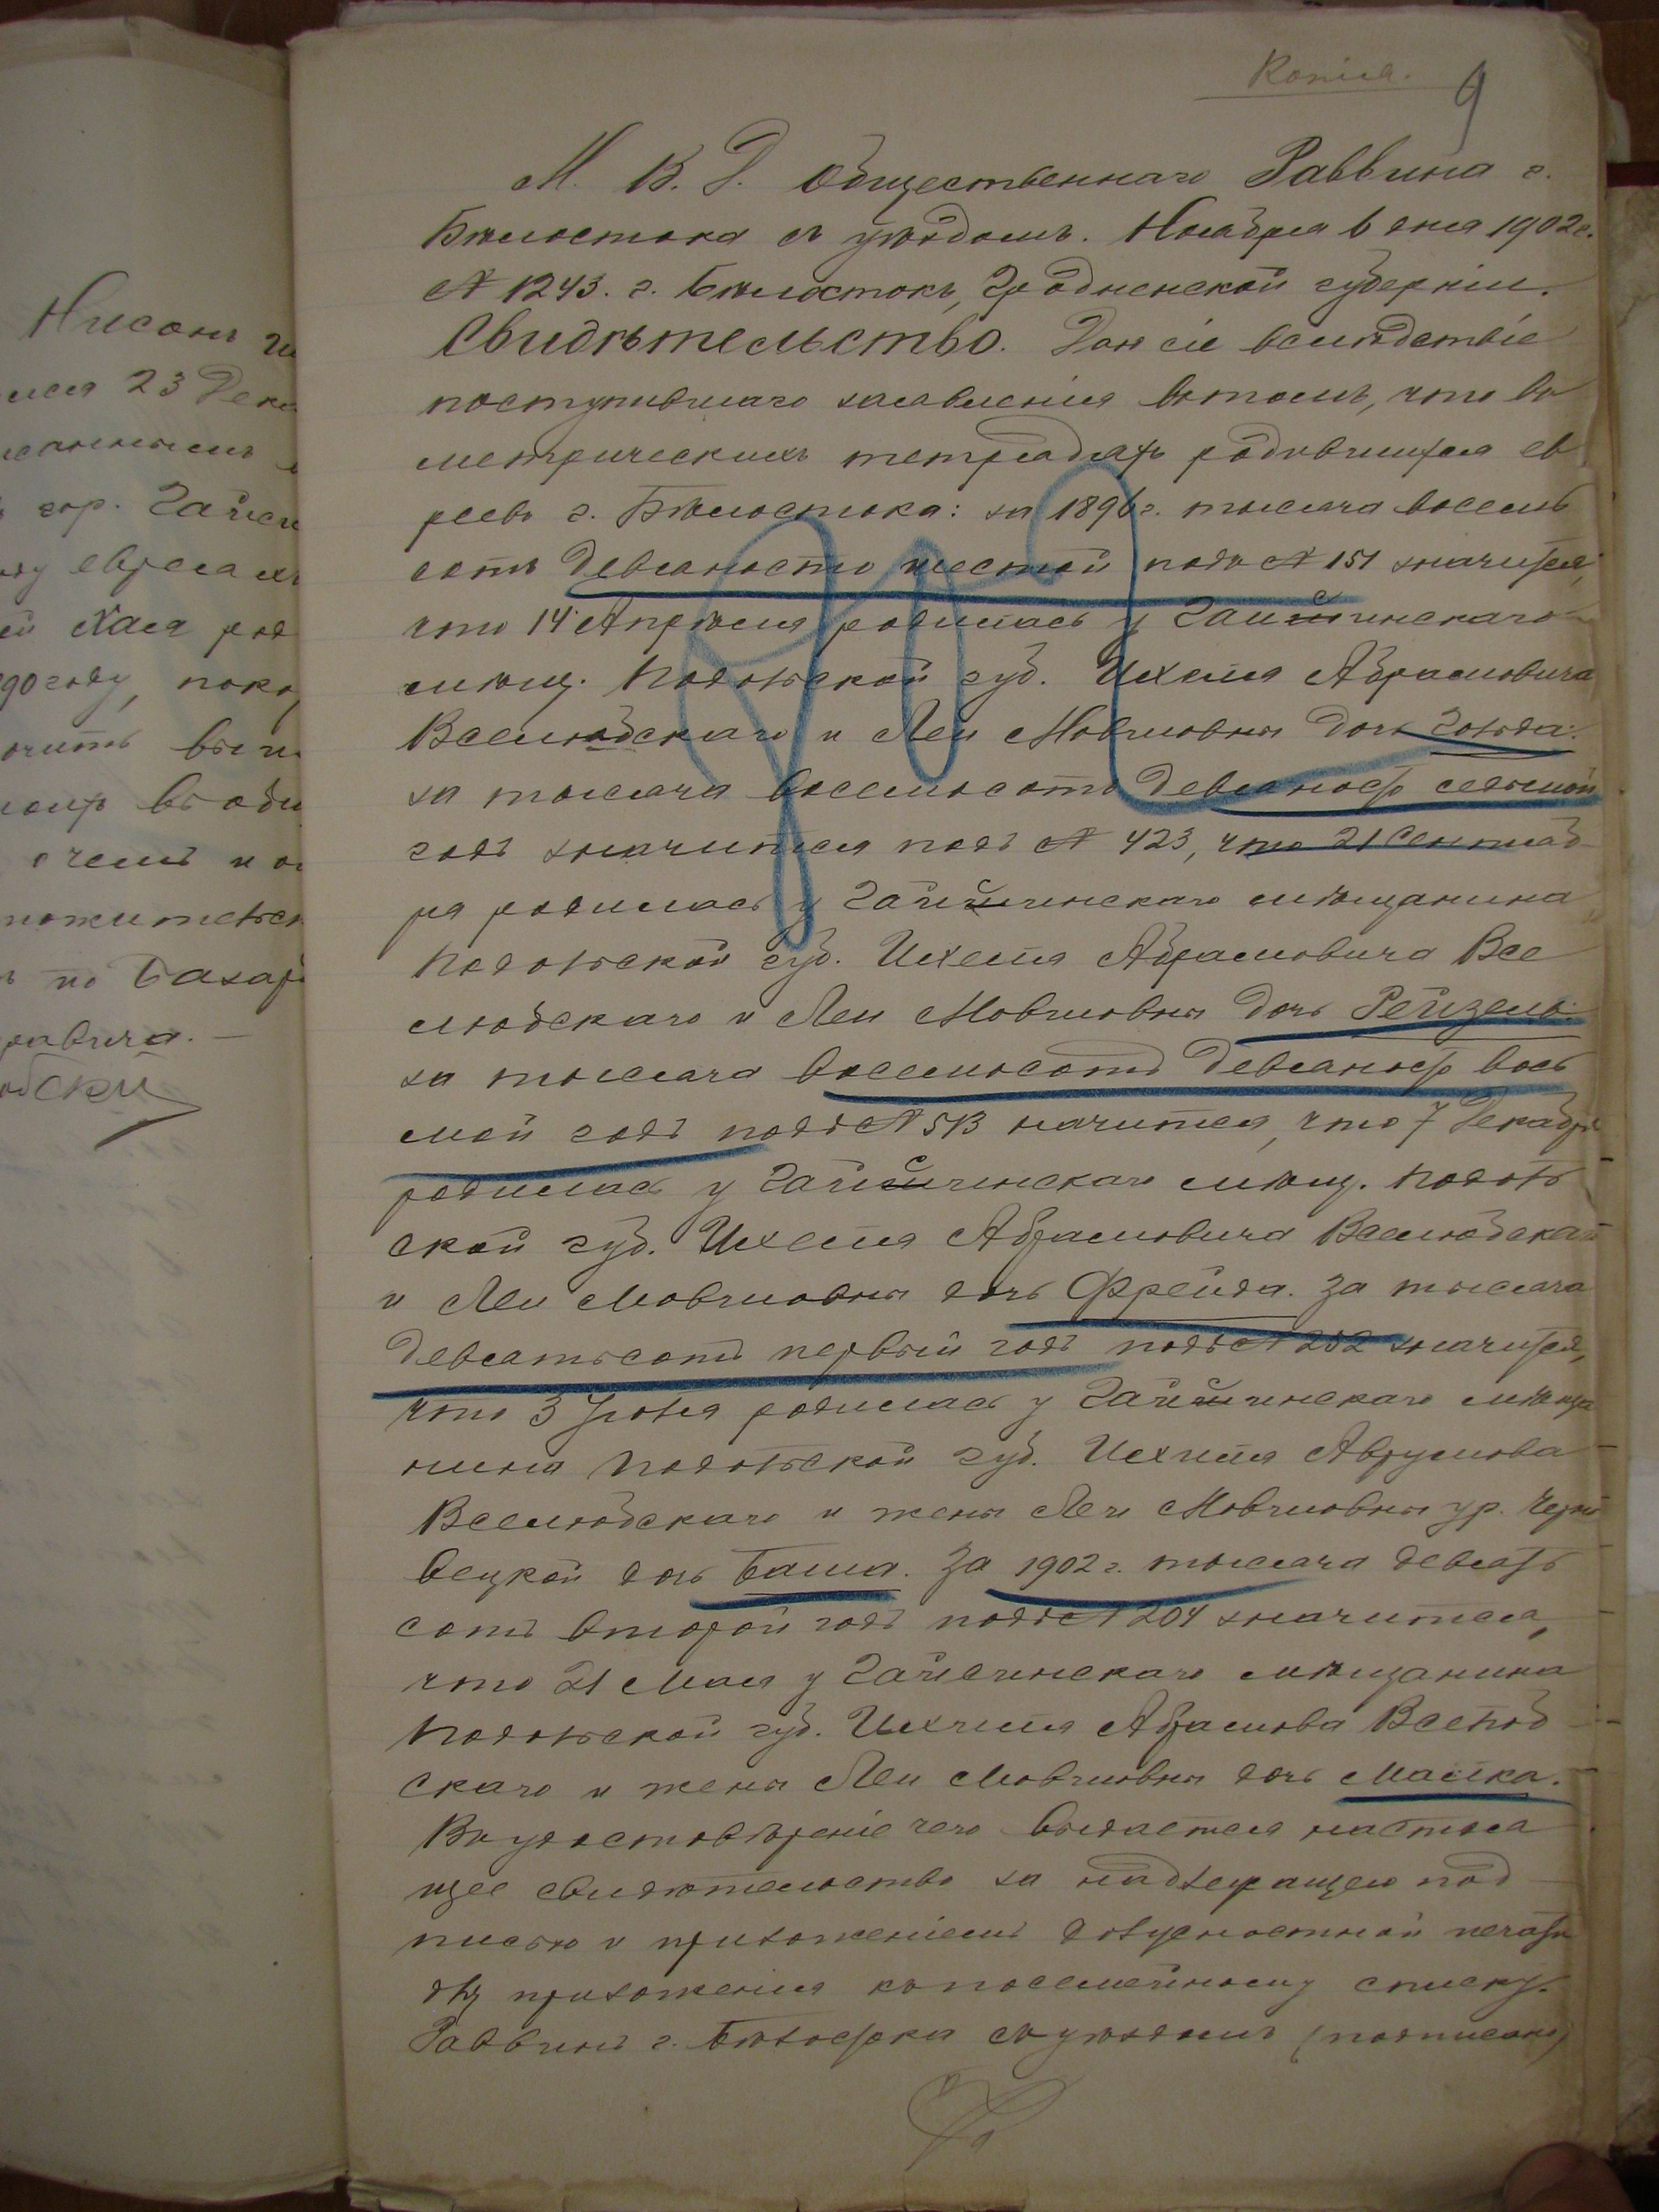 Нисонъ
23 Дек
гор. Гайси
евреях
Хая род
90 году, пока
очить
въ оби
по Базар
Копія.
9
М. В. Д. Общественнаго Раввина г.
Бѣлостока съ уѣздомъ. Ноября 6 дня 1902 г.
№ 1243. г. Бѣлостокъ, Гродненской губерніи.
Свидѣтельство. Дано сіе вслѣдствіе
поступившаго заявленія въ томъ, что въ
метрическихъ тетрадяхъ родившихся ев
реевъ г. Бѣлостока: за 1896 г. тысяча восемь
сотъ девяносто шестой подъ № 151 значится,
что 14 Апрѣля родилась у Гайсинскаго
мѣщ. Подольской губ. Ихеля Абрамовича
Вселюбскаго и Леи Мовшовны дочь Гольда.
за тысяча восемьсотъ девяносто седьмой
годъ значится подъ № 423, что 21 Сентяб
ря родилась у Гайсинскаго мѣщанина
Подольской губ. Ихеля Абрамовича Все
любскаго и Леи Мовшовны дочь Рейзель.
за тысяча восемьсотъ девяносто вось
мой годъ подъ № 513 начится, что 7 Декабря
родилась у Гайсинскаго мѣщ. Подоль
ской губ. Ихеля Абрамовича Вселюбскаго
и Леи Мовшовны дочь Фрейда. За тысяча
девятьсотъ первый годъ подъ № 282 значится,
что 3 Іюля родилась у Гайсинскаго мѣща
нина Подольской губ. Ихиля Аврумова
Вселюбскаго и жены Леи Мовшовны ур. Черно
вецкой дочь Баша. За 1902 г. тысяча девять
сотъ второй годъ подъ № 204 значится,
что 21 Мая у Гайсинскаго мѣщанина
Подольской губ. Ихиля Абрамова Вселюб
скаго и жены Леи Мовшовны дочь Малка.
Въ удостовѣреніе чего выдается настоя
щее свидѣтельство за надлежащею под
писью и приложеніемъ должностной печати
для приложенія къ посемейному списку.
Раввинъ г. Бѣлостока съ уѣздомъ (подписано)